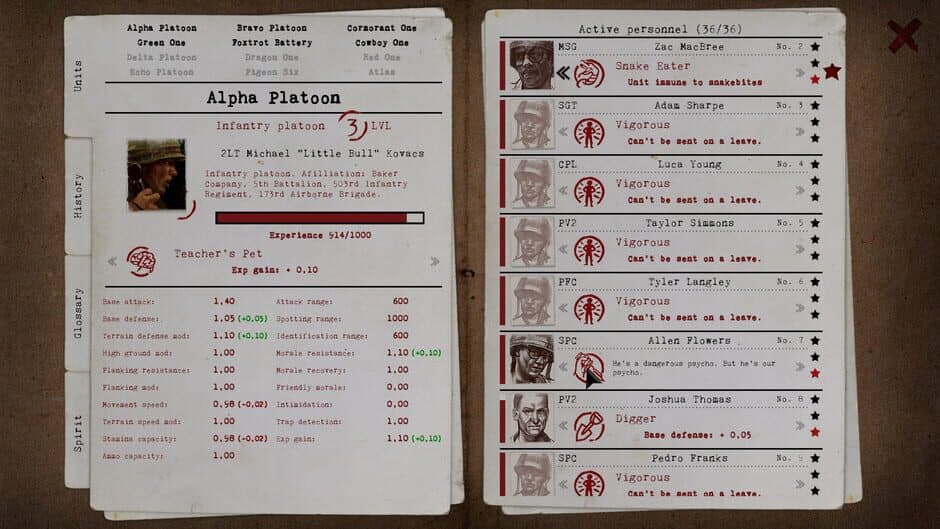 Units
History
Glossary
Spirit
Alpha Platoon Bravo Platoon Cormorant One
Green One Foxtrot Battery Cowboy One
Delta Platoon Dragon One Red One
Echo Platoon Pigeon Six Atlas
Alpha Platoon
Infantry platoon 3 LVL
2LT Michael "Little Bull" Kovacs
Infantry platoon. Afilliation: Baker
Company, 5th Battalion, 503rd Infantry
Regiment, 173rd Airborne Brigade.
Experience 914/1000
Teacher's Pet
Exp gain: + 0,10
Base attack: 1,40 Attack range: 600
Base defense: 1,05 (+0,05) Spotting range: 1000
Terrain defense mod: 1,10 (+0,10) Identification range: 600
High ground mod: 1,00 Morale resistance: 1,10 (+0,10)
Flanking resistance: 1,00 Morale recovery: 1,00
Flanking mod: 1,00 Friendly morale: 0,00
Movement speed: 0,98 (-0,02) Intimidation: 0,00
Terrain speed mod: 1,00 Trap detection: 1,00
Stamina capacity: 0,98 (-0,02) Exp gain: 1,10 (+0,10)
Ammo capacity: 1,00
Active personnel (36/36)
MSG Zac MacBree No. 2
Snake Eater
Unit immune to snakebites
SGT Adam Sharpe No. 3
Vigorous
Can't be sent on a leave.
CPL Luca Young No. 4
Vigorous
Can't be sent on a leave.
PV2 Taylor Simmons No. 5
Vigorous
Can't be sent on a leave.
PFC Tyler Langley No. 6
Vigorous
Can't be sent on a leave.
SPC Allen Flowers No. 7
He's a dangerous psycho. But he's our
psycho.
PV2 Joshua Thomas No. 8
Digger
Base defense: + 0,05
SPC Pedro Franks No. 9
Vigorous
Can't be sent on a leave.